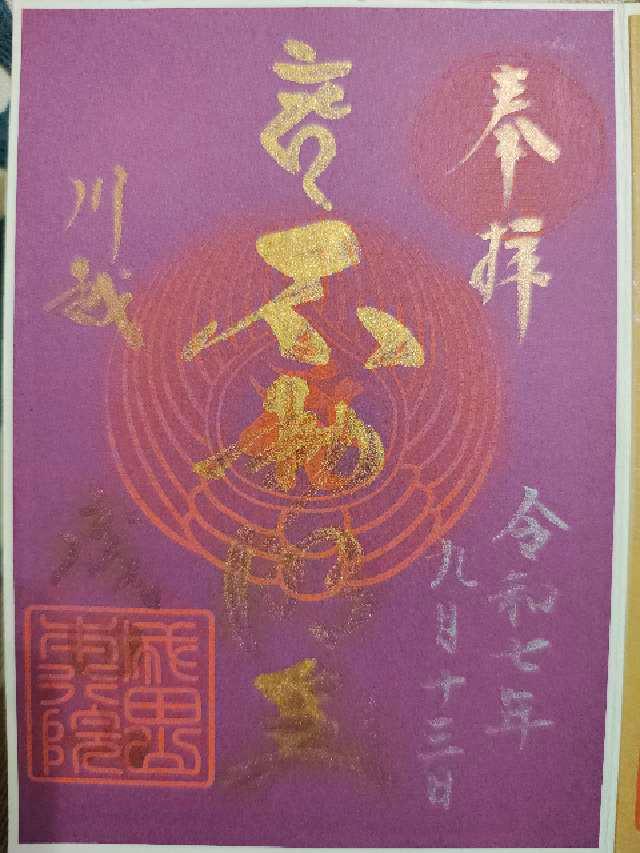 奉拝
令和七年
九月十三日
不動明王
川越
成田山
本行院